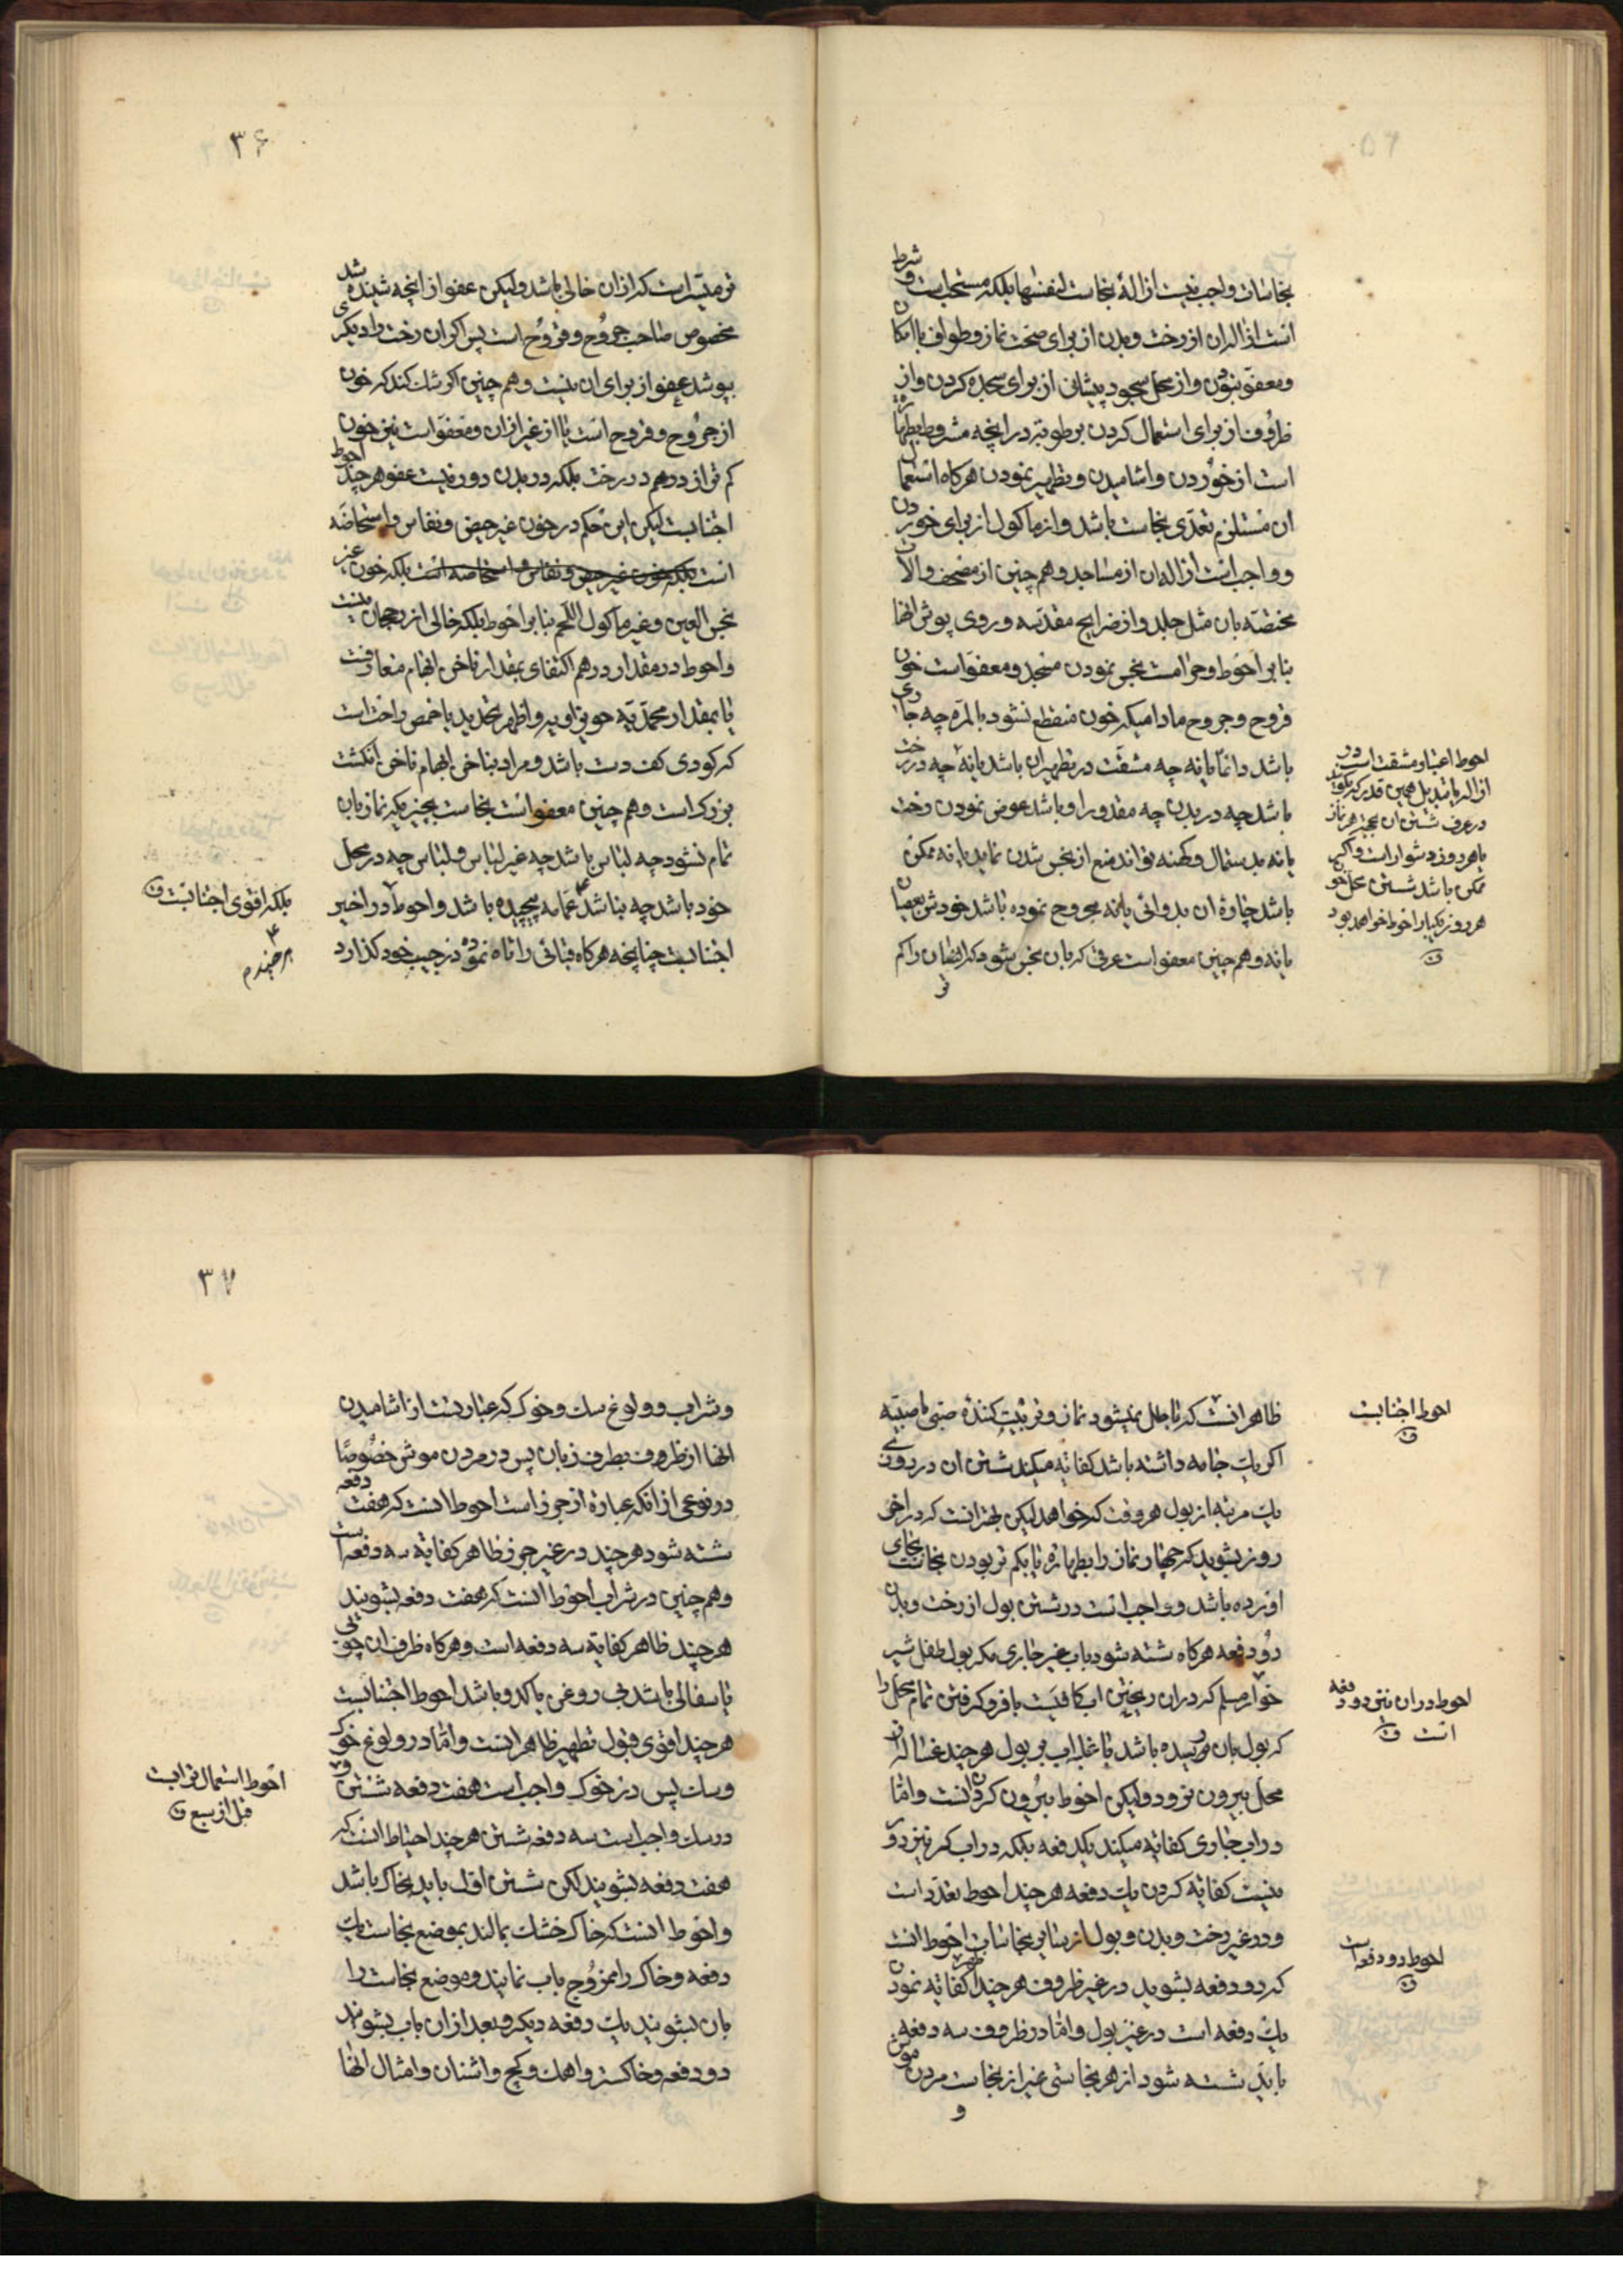 نجاسات و واجب نیست ازالهٔ نجاست لنفسها بلکه مستحب است و شرط
است ازالهٔ ان از رخت و بدن از برای صحت نماز و طواف با امکان
و معفو نبودن و از محل سجود پیشانی از برای سجده کردن و از
ظروف از برای استعمال کردن برطوبة در انچه مشروط بطهارة
است از خوردن و اشامیدن و تطهیر نمودن هرگاه استعمال
ان مستلزم تعدی نجاست باشد و از ماکول از برای خوردن
و واجب است ازاله ان از مساجد و هم چنین از مصحف و الات
مختصه بان مثل جلد و از ضرایح مقدسه و روی پوش انها
بنا بر احوط و حرامست نجس نمودن مسجد و معفو است خون
قروح و جروح مادامیکه خون منقطع نشود بالمره چه جاری
باشد دائما یا نه چه مشقت در تطهیر ان باشد یا نه چه در رخت
باشد چه در بدن چه مقدور او باشد عوض نمودن رخت
یا نه بدستمال و کهنه تواند منع از نجس شدن نماید یا نه ممکن
باشد چارهٔ ان بدوائی یا نه مجروح نموده باشد خودش بعصیان
یا نه و هم چنین معفو است عرقی که بان نجس میشود که انفکاک ان را کم
تر
احوط اعتبار مشقت است در
ازاله یا تبدیل همین قدر که بگویند
در عرف شستن ان بجهة هر نماز
یا هر روز دشوار است و اگر
ممکن باشد شستن محل
هر روز یکبار احوط خواهد بود
۳۶
تر میسر است که از ان خالی باشد و لیکن عفو از انچه شنیده شد
مخصوص صاحب جروح و قروح است پس اگر ان رخت را دیگری
بپوشد عفو از برای ان نیست و هم چنین اگر شک کند که خون
از جروح و قروح است یا از غیر ان و معفو است نیز خون
کم تر از درهم در رخت بلکه در بدن دور نیست عفو هر چند احوط
اجتنابست لیکن این حکم در خون غیر حیض و نفاس و استحاضه
است بلکه خون غیر حیض و نفاس و استحاضه است بلکه خون غیر
نجس العین و غیر ماکول اللحم بنا بر احوط بلکه خالی از رجحان نیست
و احوط در مقدار درهم اکتفای بمقدار ناخن ابهام متعارفست
یا بمقدار محمدیه حویزاویه و اظهر تحدید باخمص راحت است
که گودی کف دست باشد و مراد بناخن ابهام ناخن انگشت
بزرگ است و هم چنین معفو است نجاست بچیزیکه نماز بان
تمام نشود چه لباس باشد چه غیر لباس و لباس چه در محل
خود باشد چه نباشد عمامه پیچیده باشد و احوط در اخیر
اجتنابست چنانچه هرگاه قبائی را تاه نموده در جیب خود گذارد
بلکه اقوی اجتنابست
ظاهر انست که باطل نمیشود نماز و تربیت کنندهٔ صبی یا صبیه
اگر یک جامه داشته باشد کفایة میکند شستن ان در روزی
یک مرتبه از بول هر وقت که خواهد لیکن بهتر انست که در اخر
روز بشوید که چهار نماز را بطهارة یا بکم تر بودن نجاست بجای
اورده باشد و واجب است در شستن بول از رخت و بدن
دو دفعه هرگاه شسته شود باب غیر جاری مگر بول طفل شیر
خوار مسلم که در ان ریختن اب کافیست با فرو گرفتن تمام محل را
که بول بان رسیده باشد با غلبهٔ اب بر بول هر چند غساله از
محل بیرون نرود و لیکن احوط بیرون کردنست و اما
در اب جاری کفایه میکند یکدفعه بلکه در اب کر نیز دور
نیست کفایة کردن یک دفعه هر چند احوط تعدد است
و در غیر رخت و بدن و بول از سائر نجاسات احوط انست
که دو دفعه بشوید در غیر ظروف هر چند اظهر کفایة نمودن
یک دفعه است در غیر بول و اما در ظروف سه دفعه
باید شسته شود از هر نجاستی غیر از نجاست مردن موش
و
احوط اجتنابست
احوط در ان نیز دو دفعه
است
احوط دو دفعه است
۳۷
و شراب و ولوغ سگ و خوک که عبارتست از اشامیدن
انها از ظروف بطرف زبان پس در مردن موش خصوصا
در نوعی از انکه عبارة از جرذ است احوط انست که هفت دفعه
شسته شود هر چند در غیر جرذ ظاهر کفایة سه دفعه است
و هم چنین در شراب احوط انست که هفت دفعه بشویند
هر چند ظاهر کفایة سه دفعه است و هرگاه ظرف ان چوبی
یا سفالی باشد بی روغن یا کدو باشد احوط اجتنابست
هر چند اقوی قبول تطهیر ظاهر انست و اما در ولوغ خوک
و سگ پس در خوک واجب است هفت دفعه شستن و
در سگ واجب است سه دفعه شستن هر چند احتیاط انست که
هفت دفعه بشویند لکن شستن اول باید بخاک باشد
و احوط انست که خاک خشک بمالند بموضع نجاست یک
دفعه و خاک را ممزوج باب نمایند و موضع نجاست را
بان بشویند یک دفعه دیگر و بعد از ان باب بشویند
دو دفعه و خاکستر و اهک و گچ و اشنان و امثال انها
احوط استعمال ترابست
قبل از سبع